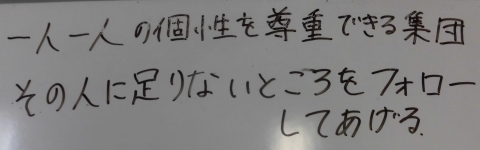 一人一人の個性を尊重できる集団
その人に足りないところをフォロー
してあげる.